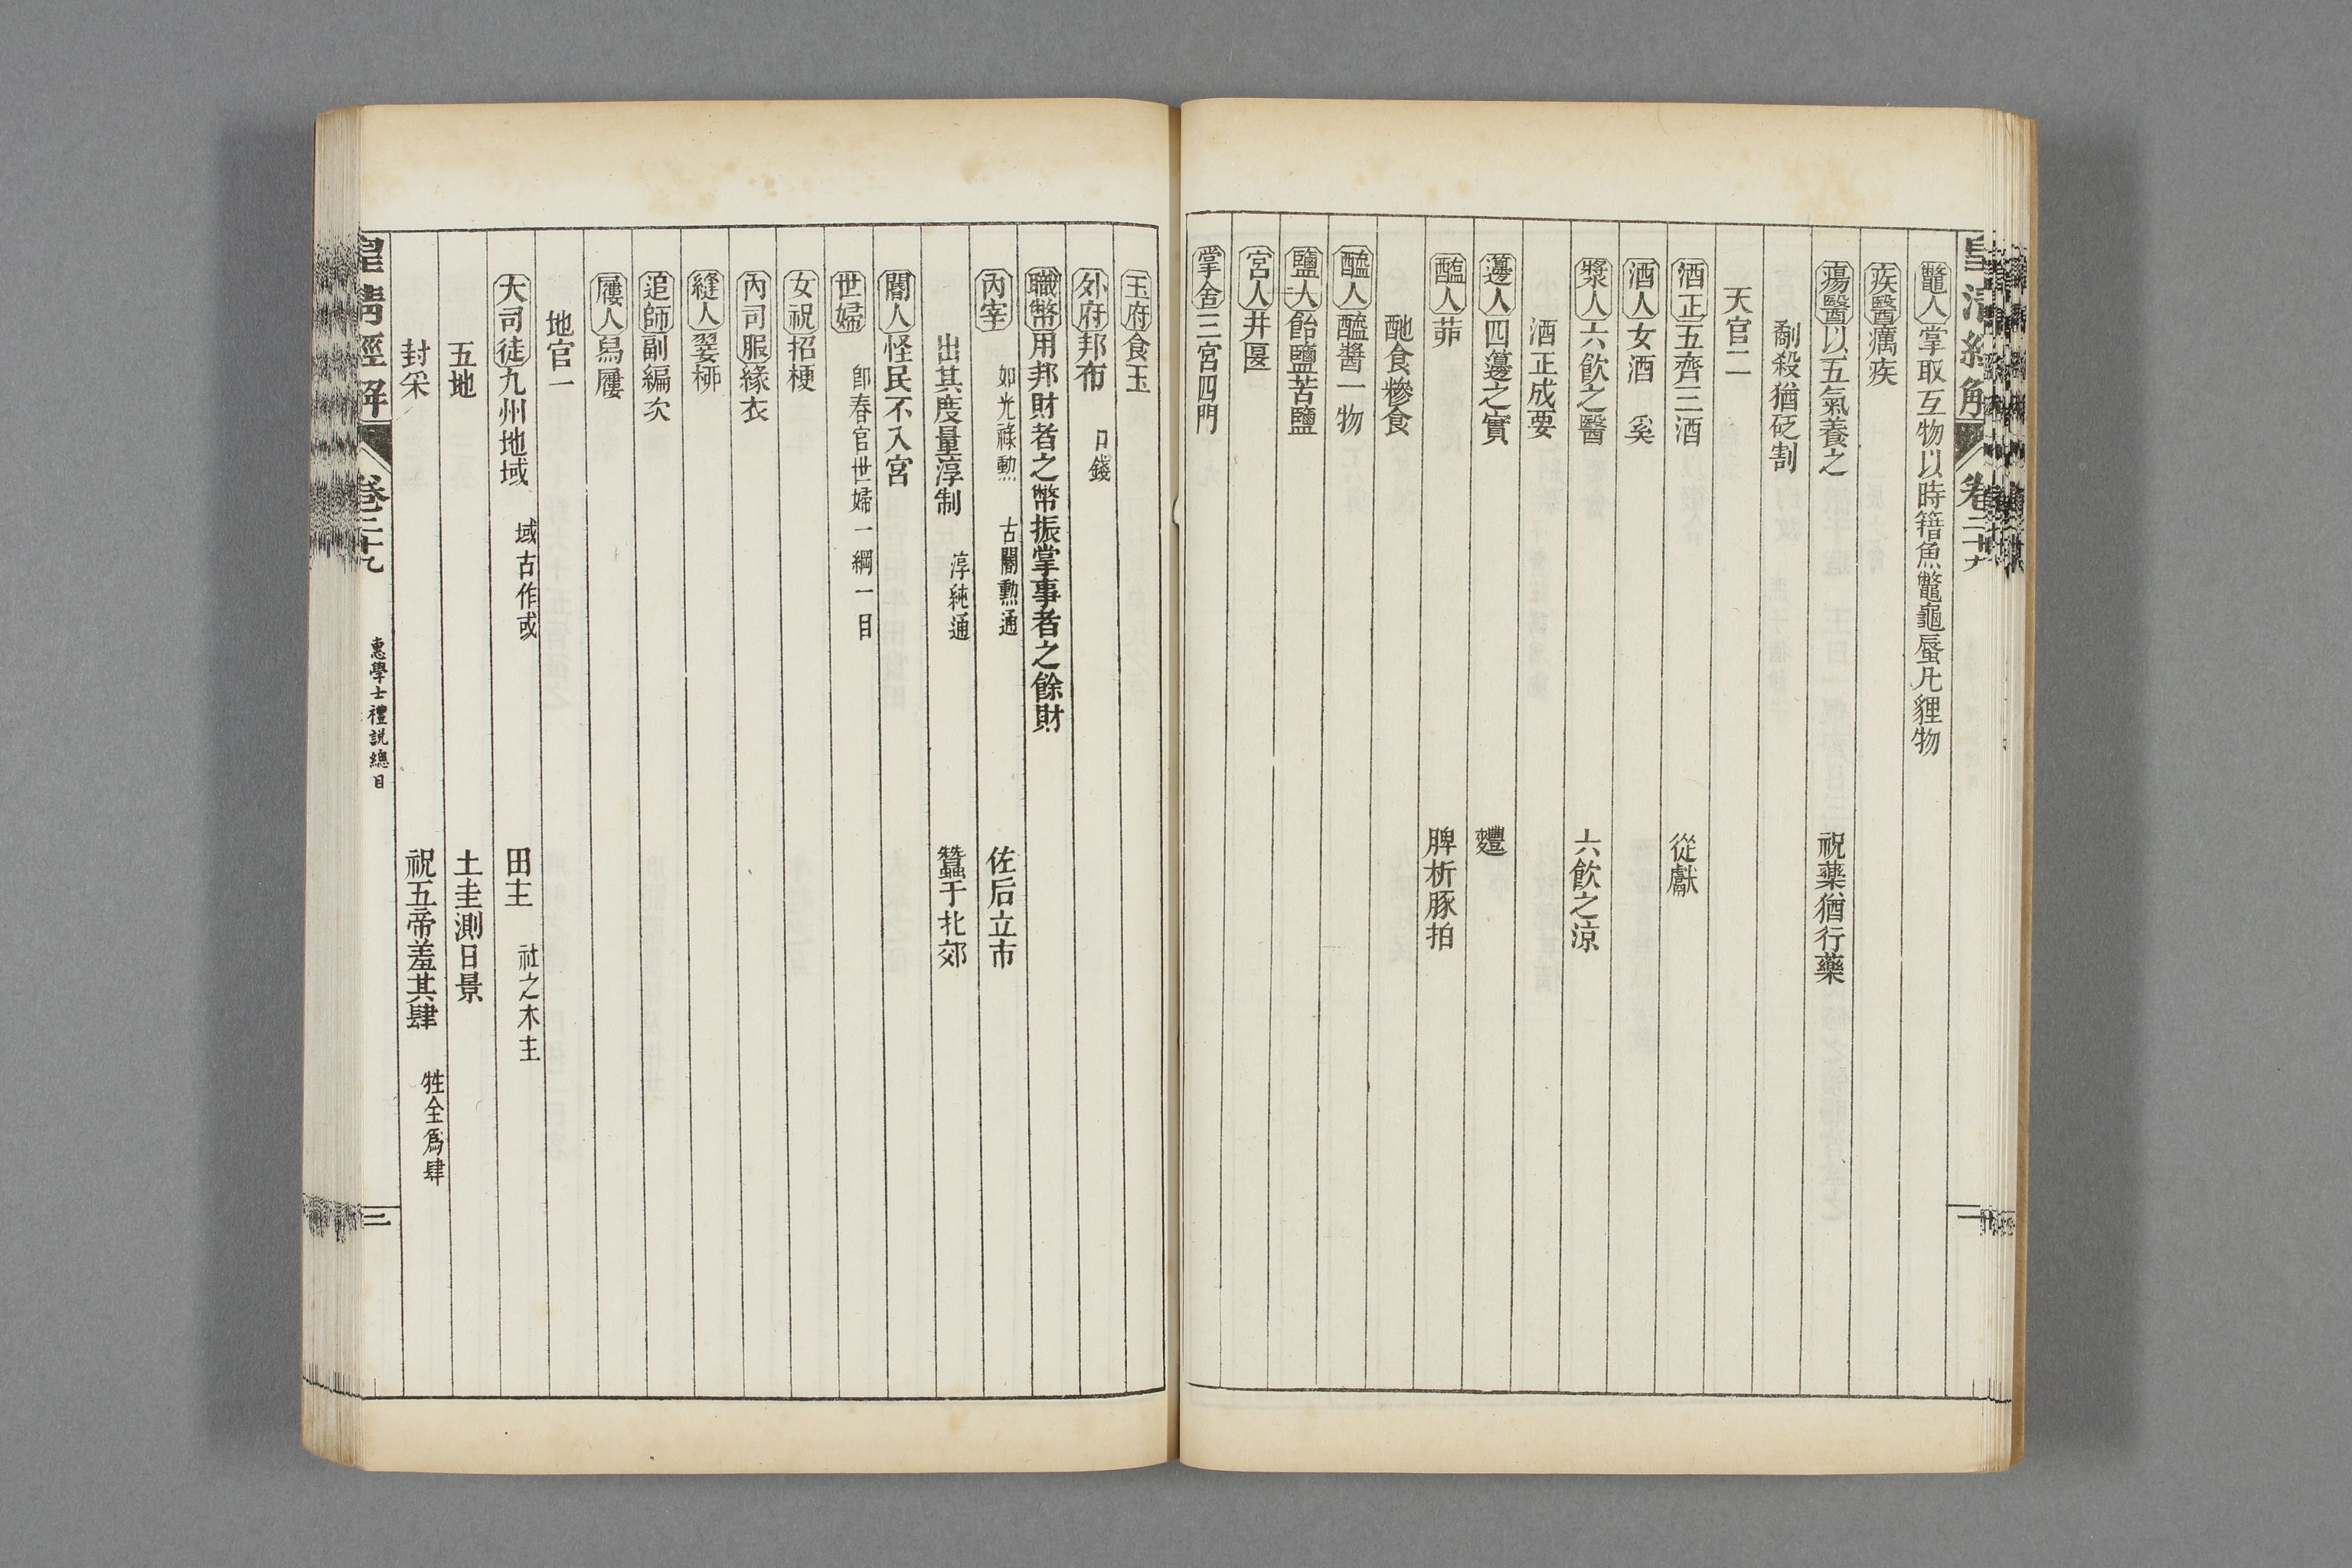 皇清經解 卷二十九
鼈人掌取互物以時籍魚鼈龜蜃凡貍物
疾醫癘疾
瘍醫以五氣養之 祝藥猶行藥
劀殺猶砭割
天官二
酒正五齊三酒 從獻
酒人女酒 奚
漿人六飮之醫 六飮之涼
酒正成要
籩人四籩之實 麷
醢人茆 脾析豚拍
酏食糝食
醯人醯醬一物
鹽人飴鹽苦鹽
宮人井匽
掌舍三宮四門
玉府食玉
外府邦布 口錢
職幣用邦財者之幣振掌事者之餘財
內宰 如光祿勳 古閽勳通 佐后立市
出其度量淳制 淳純通 蠶于北郊
閽人怪民不入宮
世婦 卽春官世婦一綱一目
女祝招梗
內司服緣衣
縫人翣柳
追師副編次
屨人舄屨
地官一
大司徒九州地域 域古作或 田主 社之木主
五地 土圭測日景
封采 祝五帝羞其肆 牲全爲肆
皇淸經解 卷二十九 惠學士禮說總目 三